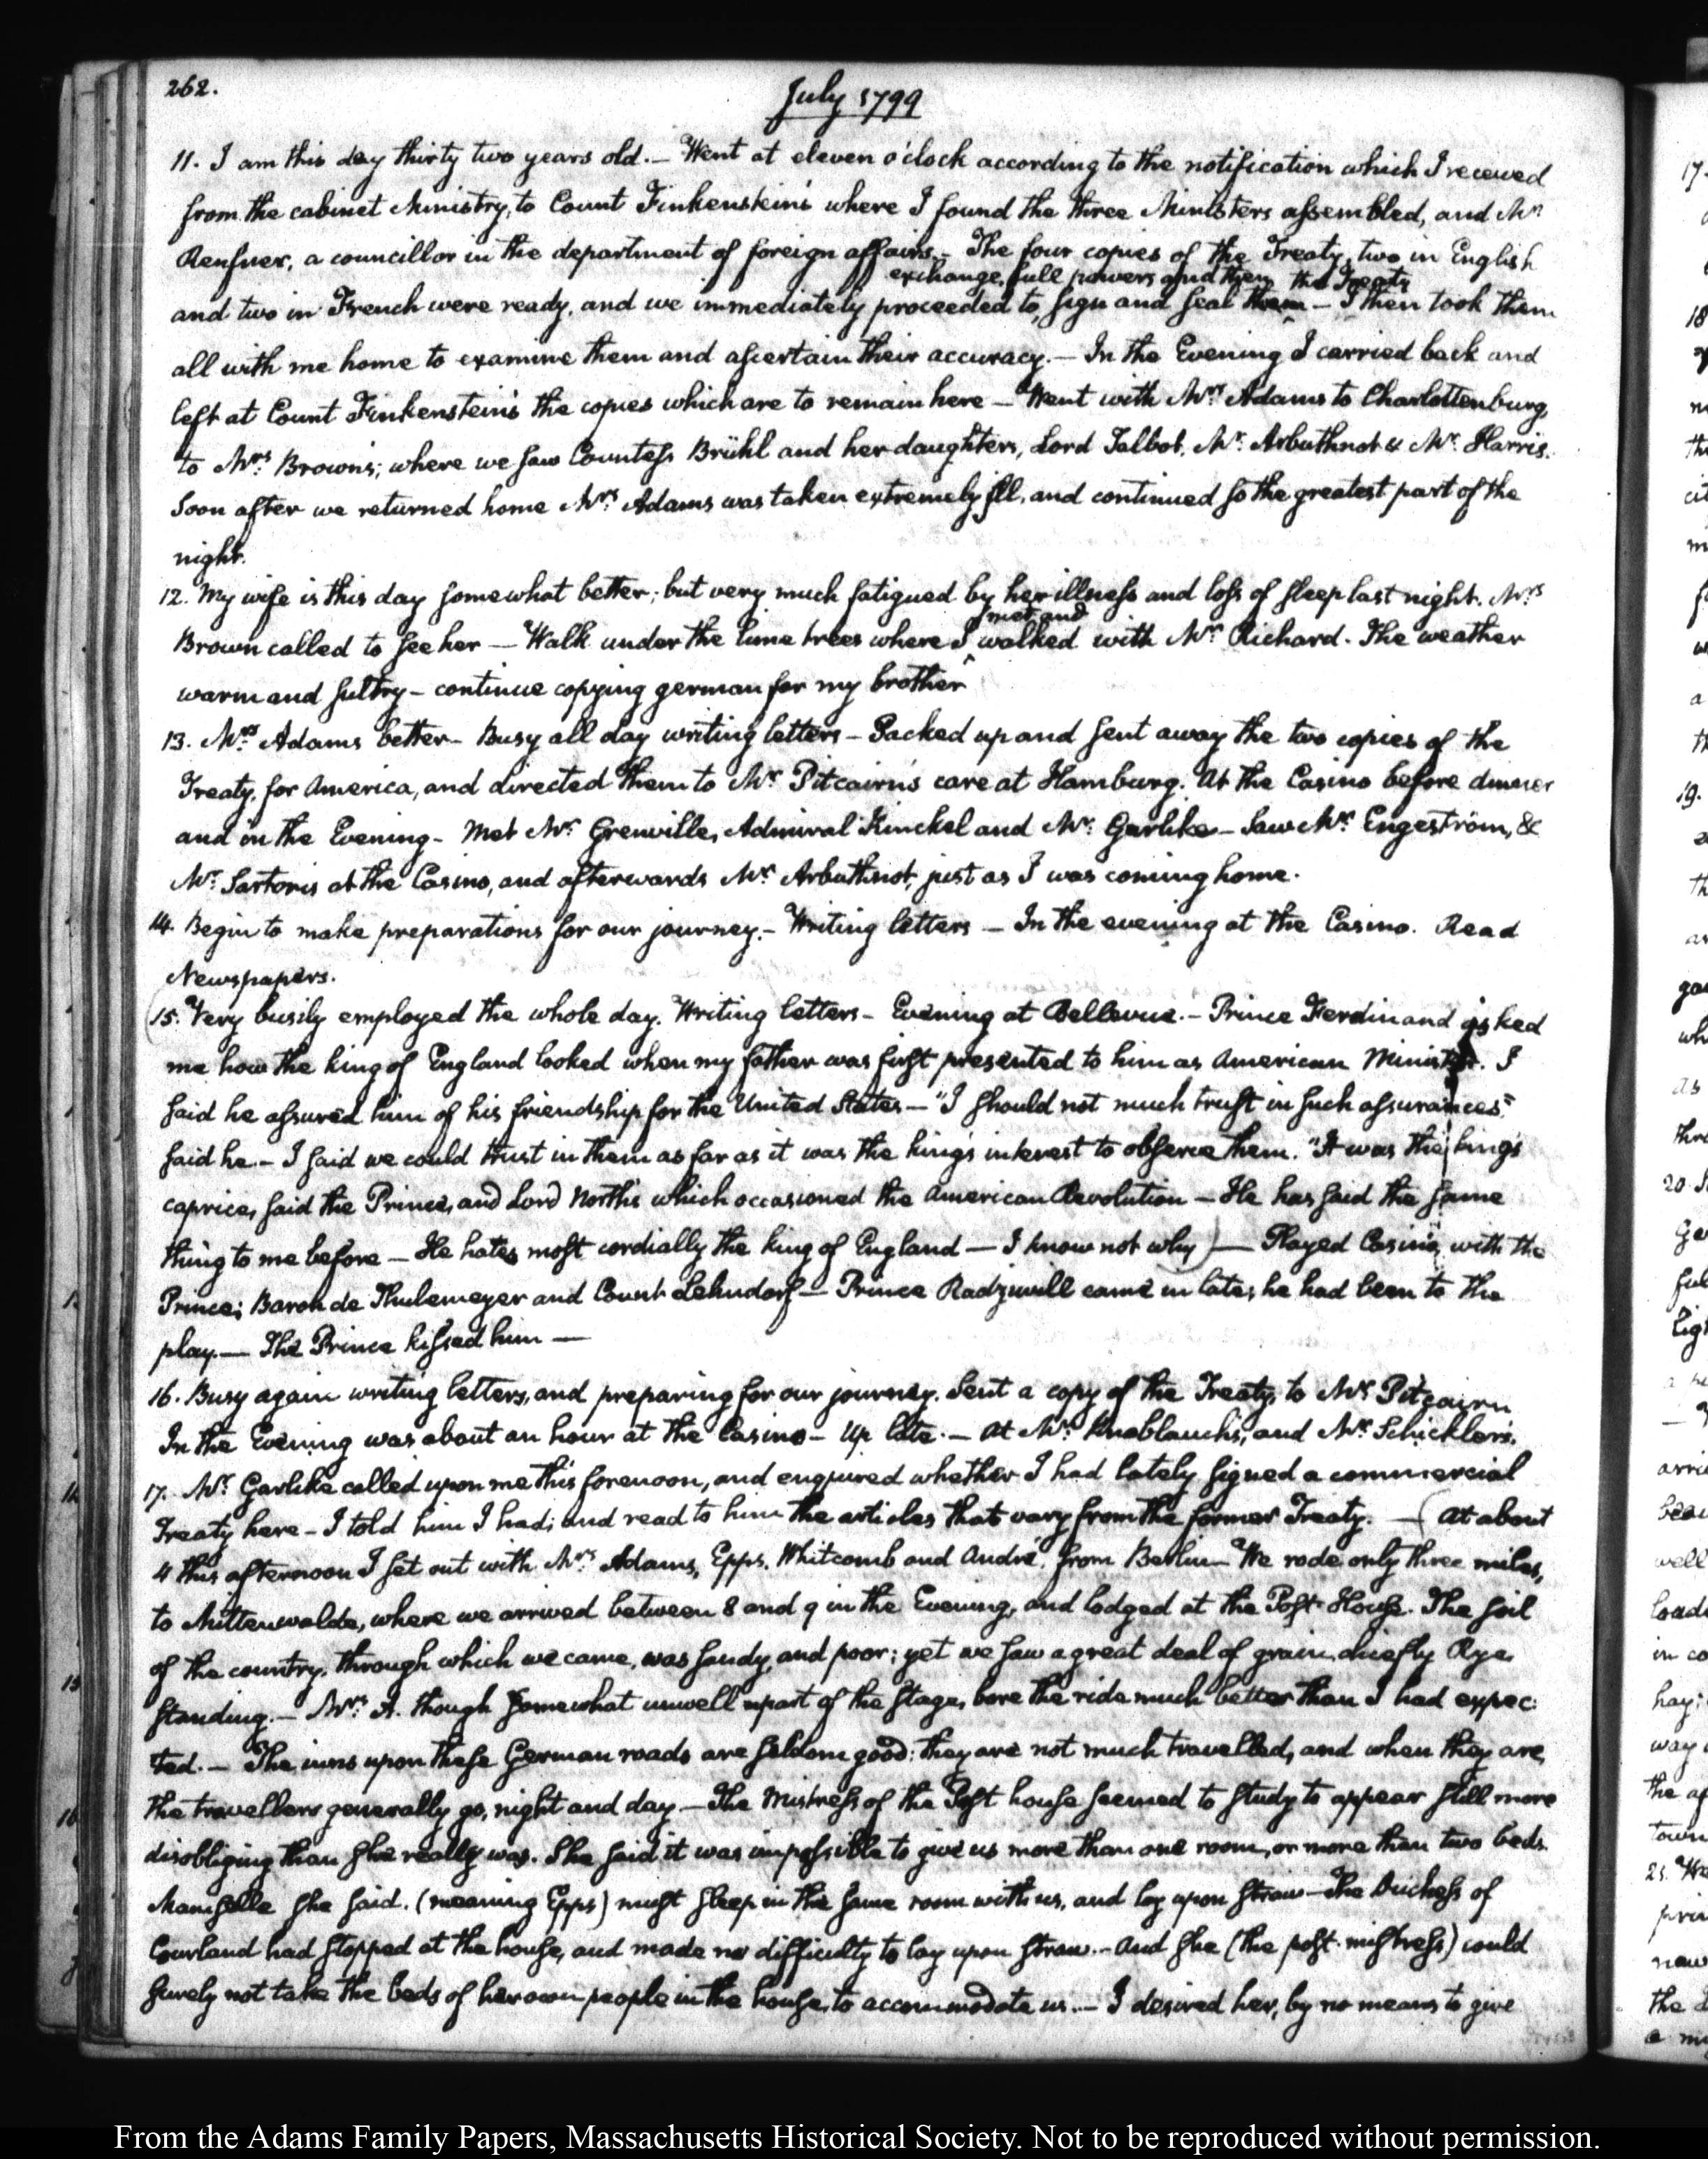 262.
July 1799
11. I am this day thirty two years old. — Went at eleven o'clock according to the notification which I received
from the cabinet Ministry, to Count Finkenstein's where I found the three Ministers assembled, and Mr.
Renfner, a councillor in the department of foreign affairs. — The four copies of the Treaty, two in English
exchange full powers and then the Treaty
and two in French were ready, and we immediately proceeded to sign and seal them — I then took them
all with me home to examine them and ascertain their accuracy. — In the Evening I carried back and
left at Count Finkenstein's the copies which are to remain here — Went with Mrs. Adams to Charlottenburg,
to Mrs. Brown's; where we saw Countess Brühl and her daughters, Lord Talbot, Mr. Arbuthnot & Mr. Harris.
Soon after we returned home Mrs. Adams was taken extremely ill, and continued so the greatest part of the
night.
12. My wife is this day somewhat better; but very much fatigued by her illness and loss of sleep last night. Mrs.
met and
Brown called to see her — Walk under the lime trees where I walked with Mr. Richard. The weather
warm and sultry — continue copying german for my brother
13. Mrs. Adams better — Busy all day writing letters — Packed up and sent away the two copies of the
Treaty, for America, and directed them to Mr. Pitcairn's care at Hamburg. At the Casino before dinner
and in the Evening — Met Mr. Grenville, Admiral Kinckel and Mr. Garlike — Saw Mr. Engeström, &
Mr. Sartoris at the Casino, and afterwards Mr. Arbuthnot, just as I was coming home.
14. Begin to make preparations for our journey. — Writing letters — In the evening at the Casino. Read
Newspapers.
(15. Very busily employed the whole day. Writing letters — Evening at Bellevue. — Prince Ferdinand asked
me how the king of England looked when my father was first presented to him as American Minister. I
said he assured him of his friendship for the United States — "I should not much trust in such assurances"
said he — I said we could trust in them as far as it was the king's interest to observe them. "It was the king's
caprice, said the Prince, and Lord North's which occasioned the American Revolution — He has said the same
thing to me before — He hates most cordially the king of England — I know not why) — Played Casino, with the
Prince; Baron de Thulemeyer and Count Lehndorf — Prince Radziwill came in late; he had been to the
play. — The Prince kissed him —
16. Busy again writing letters, and preparing for our journey. Sent a copy of the Treaty, to Mr. Pitcairn
In the Evening was about an hour at the Casino — Up late. — At Mr. Knoblauch's, and Mr. Schickler's.
17. Mr. Garlike called upon me this forenoon, and enquired whether I had lately signed a commercial
Treaty here — I told him I had; and read to him the articles that vary from the former Treaty. — (At about
4 this afternoon I set out with Mrs. Adams, Epps, Whitcomb and André, from Berlin — We rode only three miles,
to Mittenwalde, where we arrived between 8 and 9 in the Evening, and lodged at the Post-House. The soil
of the country, through which we came, was sandy, and poor; yet we saw a great deal of grain, chiefly Rye,
standing. — Mrs. A. though somewhat unwell upart of the stage, bore the ride much better than I had expec:
ted. — The inns upon these German roads are seldom good: they are not much travelled, and when they are,
the travellers generally go, night and day — The Mistress of the Post house seemed to study to appear still more
disobliging than she really was. She said it was impossible to give us more than one room, or more than two beds.
Mamselle she said, (meaning Epps) must sleep in the same room with us, and lay upon straw — The Duchess of
Courland had stopped at the house, and made no difficulty to lay upon straw. — And she (the post-mistress) could
surely not take the beds of her own people in the house, to accommodate us. — I desired her, by no means to give
From the Adams Family Papers, Massachusetts Historical Society. Not to be reproduced without permission.